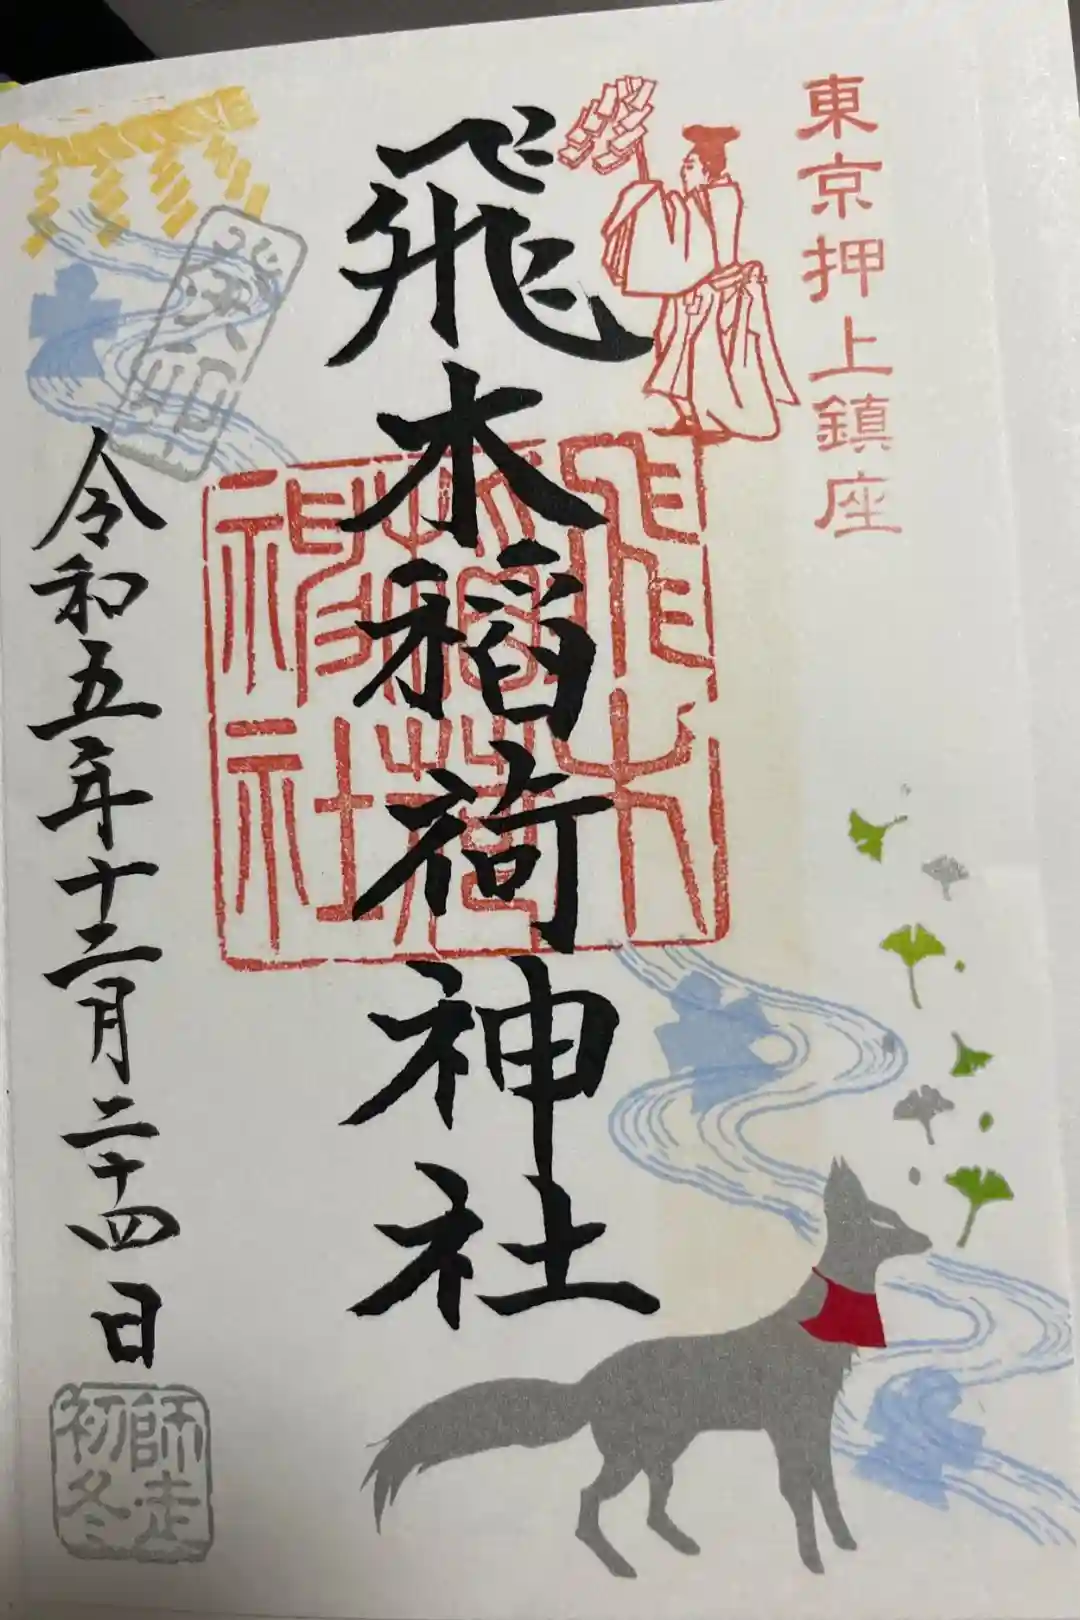 東京押上鎮座
飛木稲荷神社
飛木稲荷神社
令和五年十二月二十四日
師走
初冬